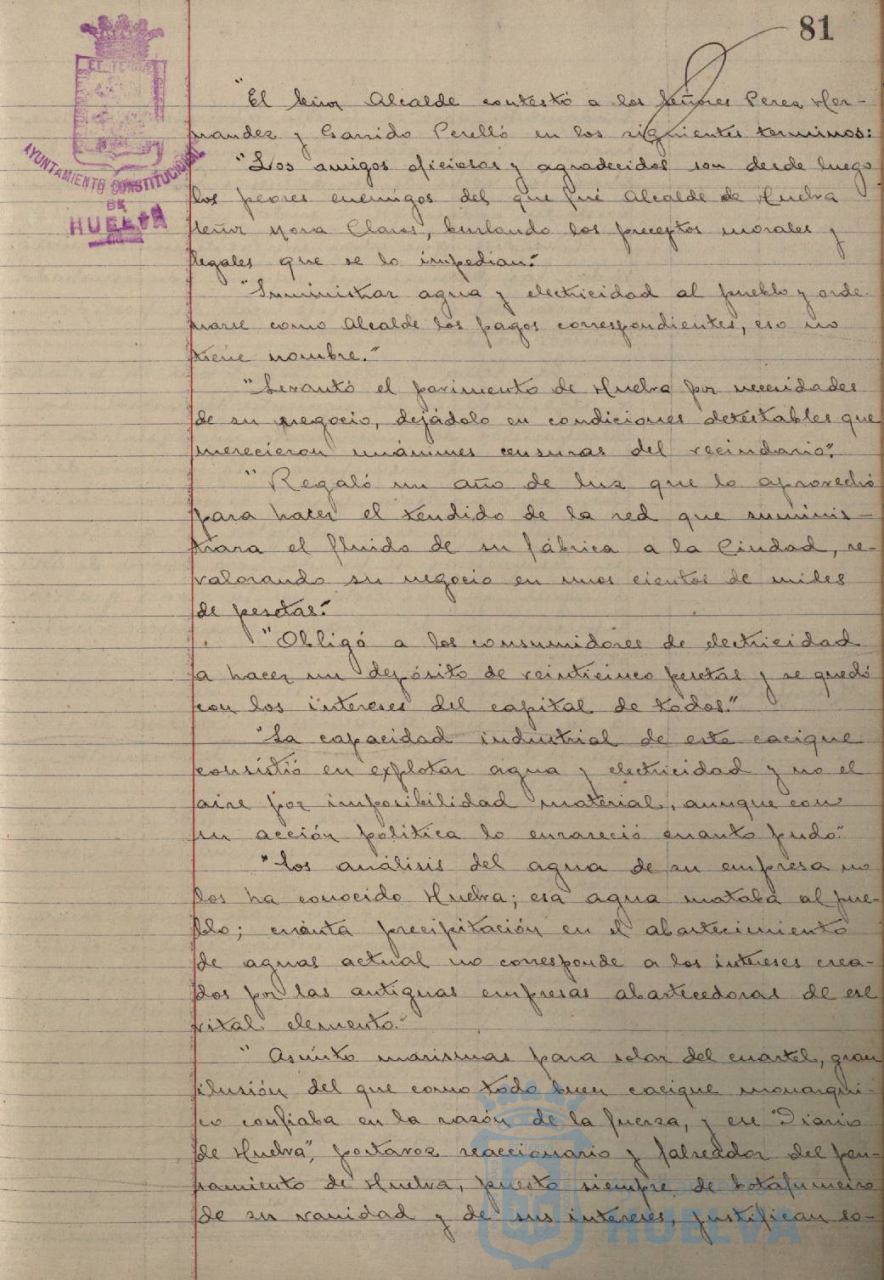 81
AYUNTAMIENTO CONSTITUCIONAL
DE
HUELVA
"El señor Alcalde contestó a los señores Perez Her-
nandez y Garrido Perelló en los siguientes terminos:
"Los amigos oficiosos y agradecidos son desde luego
los peores enemigos del que fué Alcalde de Huelva
señor Mora Claros, burlando los preceptos morales y
legales que se lo impedian."
"Suministrar agua y electricidad al pueblo y orde-
narse como Alcalde los pagos correspondientes, eso no
tiene nombre."
"Levantó el pavimento de Huelva por necesidades
de su negocio, dejádolo en condiciones detestables que
merecieron unánimes censuras del vecindario".
"Regaló un año de luz que lo aprovechó
para hacer el tendido de la red que suminis-
trara el fluido de su fábrica a la Ciudad, re-
valorando su negocio en unos cientos de miles
de pesetas."
"Obligó a los consumidores de electricidad
a hacer un depósito de veinticinco pesetas y se quedó
con los intereses del capital de todos."
"La capacidad industrial de este cacique
consistió en explotar agua y electricidad y no el
aire por imposibilidad material, aunque con
su acción política lo enrareció cuanto pudo."
"Los análisis del agua de su empresa no
los ha conocido Huelva; esa agua mataba al pue-
blo; cuánta precipitación en el abastecimiento
de aguas actual no corresponde a los intereses crea-
dos por las antiguas empresas abastecedoras de ese
vital elemento."
"Asunto marismas para solar del cuartel, gran
ilusión del que como todo buen cacique monarqui-
co confiaba en la razón de la fuerza, y ese "Diario
de Huelva", portavoz reaccionario y falseador del pen-
samiento de Huelva, puesto siempre de botafumeiro
de su vanidad y de sus intereses, justifican so-
HUELVA